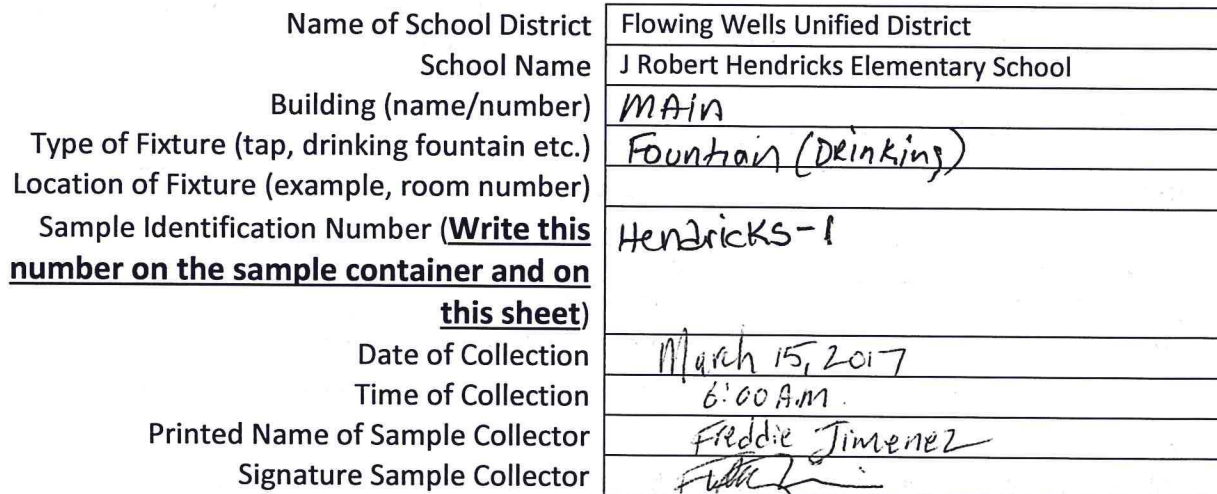 Name of School District Flowing Wells Unified District
School Name J Robert Hendricks Elementary School
Building (name/number) MAin
Type of Fixture (tap, drinking fountain etc.) Fountian (Drinking)
Location of Fixture (example, room number)
Sample Identification Number (Write this Hendricks-1
number on the sample container and on
this sheet)
Date of Collection March 15, 2017
Time of Collection 6:00 A.M.
Printed Name of Sample Collector Freddie Jimenez
Signature Sample Collector